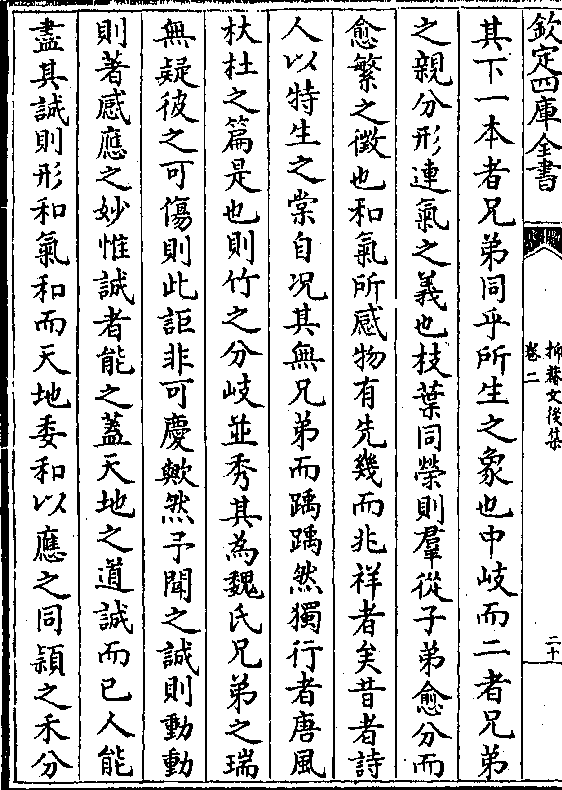 欽定四庫全書
抑菴文後集
卷二
二十
其下一本者兄弟同乎所生之象也中岐而二者兄弟
之親分形連氣之義也枝葉同榮則羣從子弟愈分而
愈繁之徴也和氣所感物有先幾而兆祥者矣昔者詩
人以特生之棠自況其無兄弟而踽踽然獨行者唐風
杕杜之篇是也則竹之分岐並秀其為魏氏兄弟之瑞
無疑彼之可傷則此詎非可慶歟然予聞之誠則動動
則著感應之妙惟誠者能之蓋天地之道誠而已人能
盡其誠則形和氣和而天地委和以應之同穎之禾分